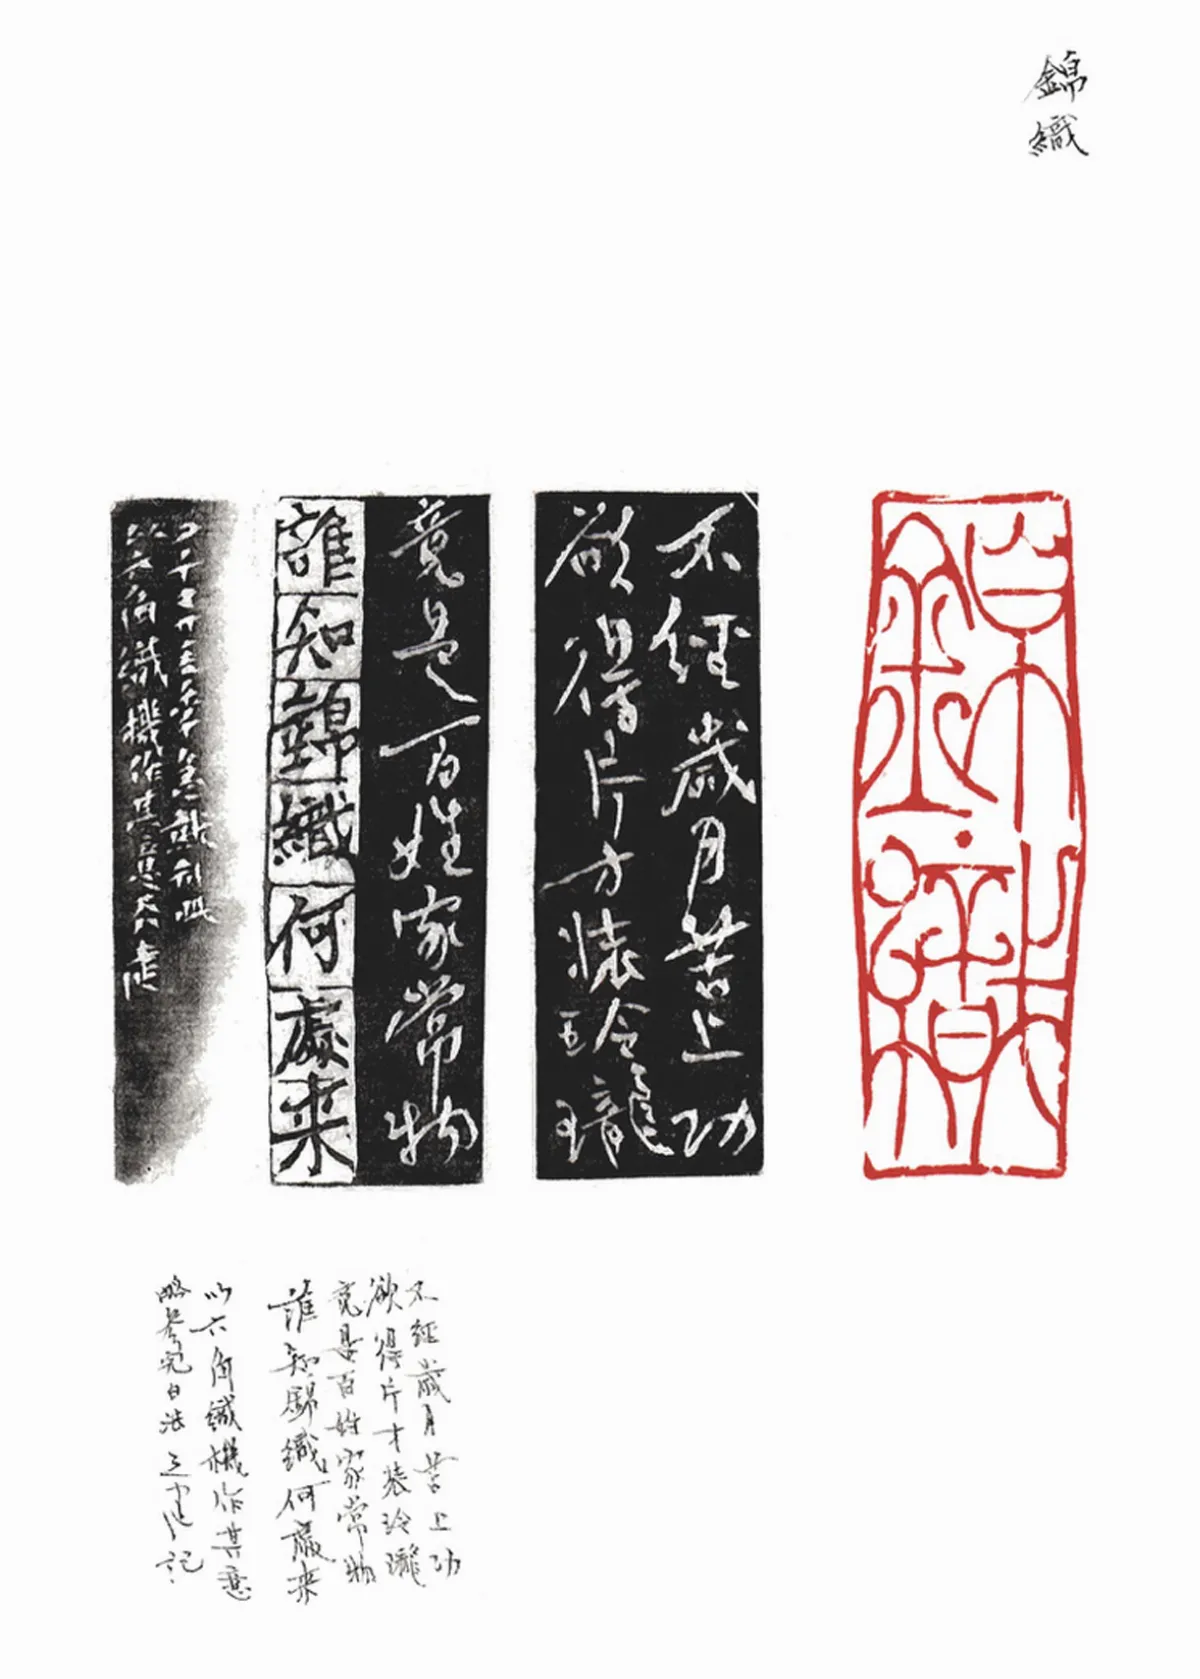 錦織
錦織
不經歲月苦上功
欲得片方裝玲瓏
竟是百姓家常物
誰知錦織何處来
以六角織機作其意
不經歲月苦上功
欲得片才裝玲瓏
竟是百姓家常物
誰知錦織何處來
以六角織機作其意
略參完白法
記